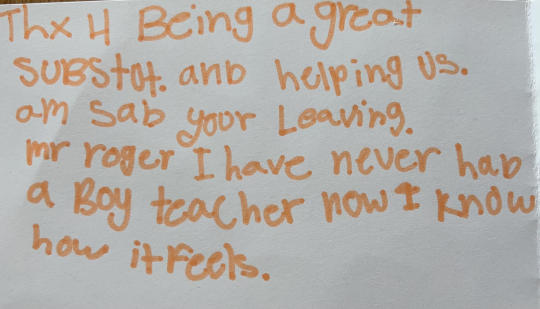 Thx 4 Being a great
SUBStut. anb helping us.
am sab your Leaving.
mr roger I have never hab
a Boy teacher now I know
how it feels.